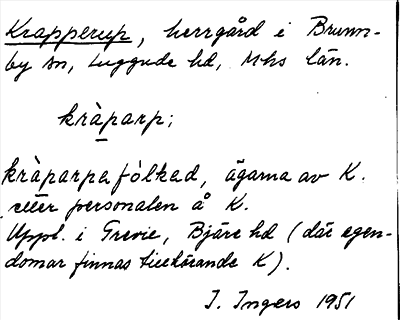 Krapperup, herrgård i Brunn-
by sn, Luggude hd, Mhs län.
kràparp;
kràparpafólkad, ägarna av K.
eller personalen å K.
Uppt. i Grevie, Bjäre hd (där egen-
domar finnas tillhörande K).
I. Ingers 1951